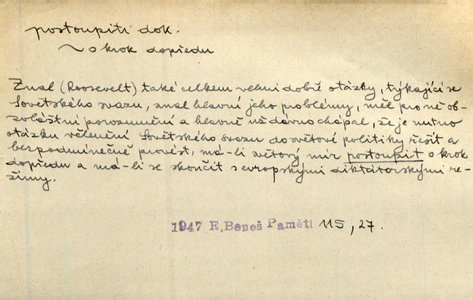 postoupiti dok.
~ o krok dopředu
Znal (Roosevelt) také celkem velmi dobře otázky, týkající se
Sovětského svazu, znal hlavní jeho problémy, měl pro ně ob-
zvláštní porozumění a hlavně už dávno chápal, že je nutno
otázku včlenění Sovětského svazu do světové politiky řešit a
bezpodmínečně provést, má-li světový mír postoupit o krok
dopředu a má-li se skončit s evropskými diktátorskými re-
žimy.
1947 E. Beneš Paměti 115, 27.